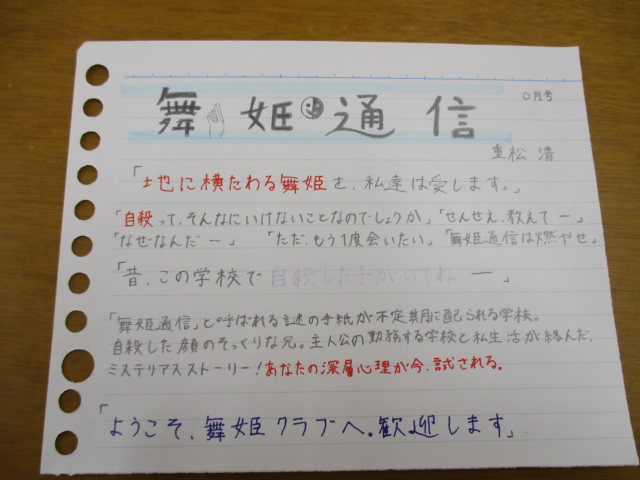 舞姫通信
○月号
重松 清
「地に横たわる舞姫を、私達は愛します。」
「自殺って、そんなにいけないことなのでしょうか」「せんせえ、教えてー」
「なぜなんだー」 「ただ、もう1度会いたい」 「舞姫通信は燃やせ」
「昔、この学校で自殺した子がいてね ー」
「舞姫通信」と呼ばれる謎の手紙が不定期に配られる学校。
自殺した顔のそっくりな兄。主人公の勤務する学校と私生活が絡んだ、
ミステリアスストーリー!あなたの深層心理が今、試される。
「ようこそ、舞姫クラブへ。歓迎します」